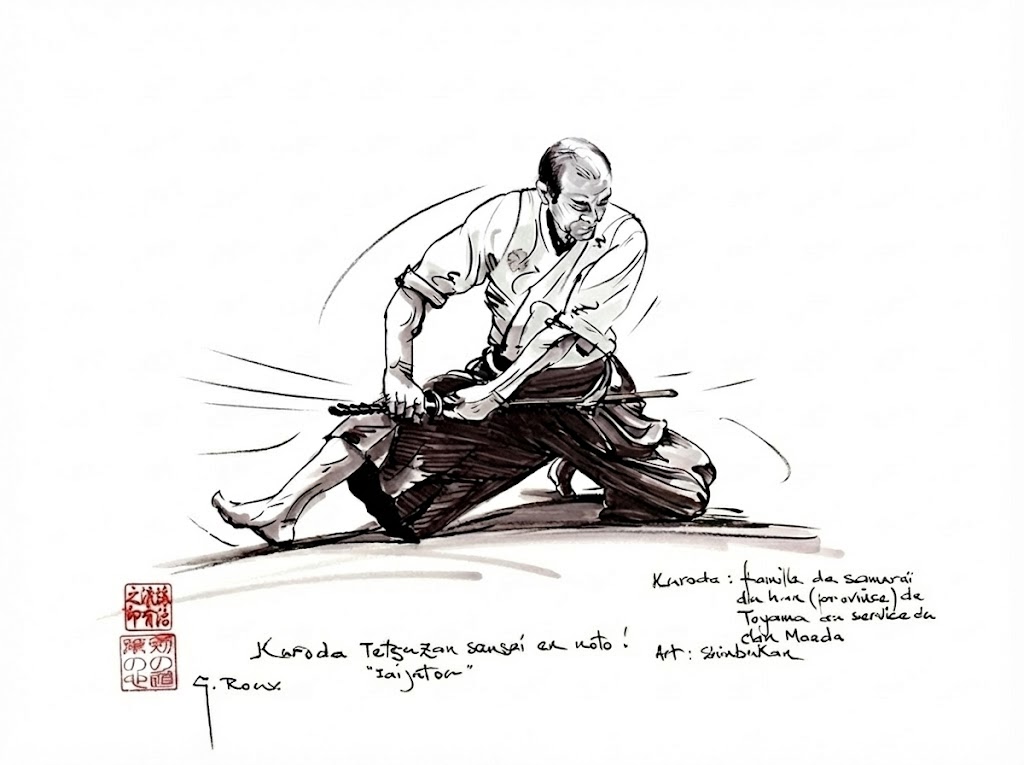 Kuroda : famille de samuraï
du han (province) de
Toyama au service du
clan Maeda
Art : Shinbukan
Kuroda Tetsuzan sensei en noto !
G. Roux.